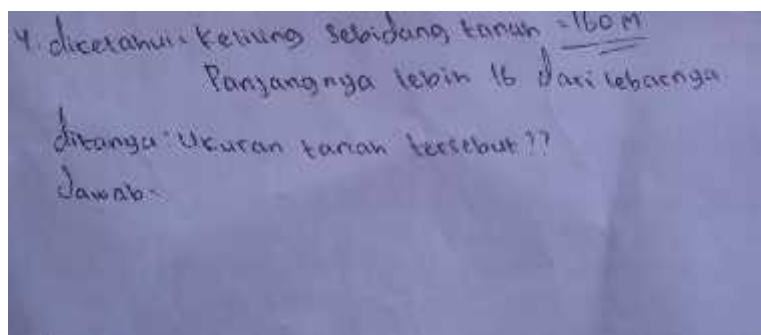 4. diketahui : Keliling sebidang tanah = 160 M
Panjangnya lebih 16 dari lebarnya.
ditanya : Ukuran tanah tersebut ??
Jawab :